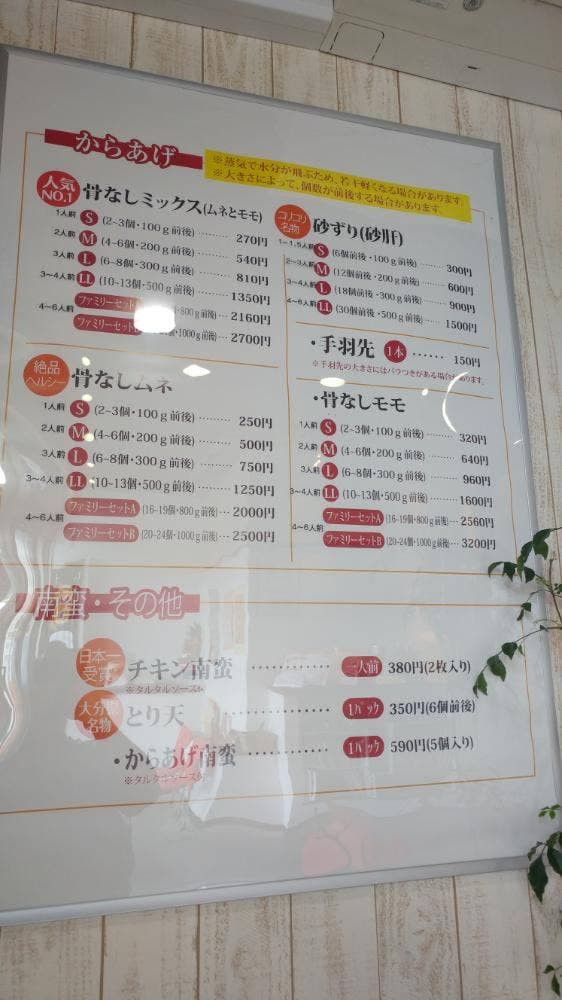 からあげ
※蒸気で水分が飛ぶため、若干軽くなる場合があります。
※大きさによって、個数が前後する場合があります。
人気NO.1 骨なしミックス(ムネとモモ)
1人前 S (2~3個・100g前後) ……… 270円
2人前 M (4~6個・200g前後) ……… 540円
3人前 L (6~8個・300g前後) ……… 810円
3~4人前 LL (10~13個・500g前後) ……… 1350円
4~6人前 ファミリーセット 800g前後) … 2160円
ファミリーセット 1000g前後) … 2700円
絶品ヘルシー 骨なしムネ
1人前 S (2~3個・100g前後) ……… 250円
2人前 M (4~6個・200g前後) ……… 500円
3人前 L (6~8個・300g前後) ……… 750円
3~4人前 LL (10~13個・500g前後) ……… 1250円
4~6人前 ファミリーセットA (16~19個・800g前後) … 2000円
ファミリーセットB (20~24個・1000g前後) … 2500円
コリコリ名物 砂ずり(砂肝)
1~1.5人前 S (6個前後・100g前後) ……… 300円
2~3人前 M (12個前後・200g前後) ……… 600円
3~4人前 L (18個前後・300g前後) ……… 900円
4~6人前 LL (30個前後・500g前後) ……… 1500円
・手羽先 1本 …… 150円
※手羽先の大きさにはバラつきがある場合があります。
・骨なしモモ
1人前 S (2~3個・100g前後) ……… 320円
2人前 M (4~6個・200g前後) ……… 640円
3人前 L (6~8個・300g前後) ……… 960円
3~4人前 LL (10~13個・500g前後) ……… 1600円
4~6人前 ファミリーセットA (16~19個・800g前後) … 2560円
ファミリーセットB (20~24個・1000g前後) … 3200円
南蛮・その他
日本一受賞 チキン南蛮 ………… 一人前 380円(2枚入り)
※タルタルソース
大分 名物 とり天 ………… 1パック 350円(6個前後)
・からあげ南蛮 ………… 1パック 590円(5個入り)
※タルタルソース